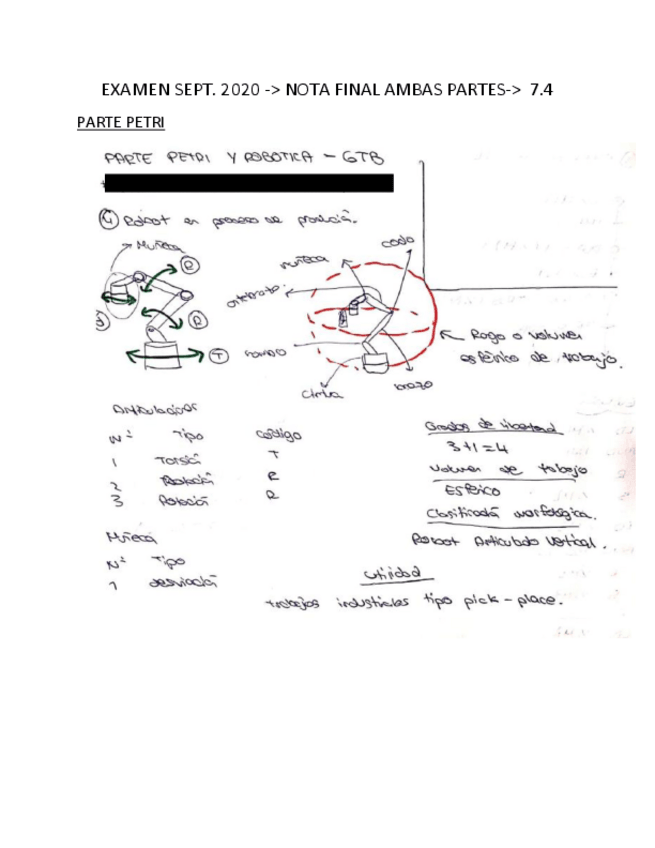 EXAMEN SEPT. 2020 -> NOTA FINAL AMBAS PARTES-> 7.4
PARTE PETRI
PARTE PETRI Y ROBOTICA - GTB
4 Robot en proceso de producción.
Muñeca
R
R
T
codo
muñeca
antebrazo
Rago o volumen
esférico de trabajo.
brazo
Articulaciones
Nº Tipo Código
1 Torsión T
2 Rotación R
3 Rotación R
Grados de libertad
3+1=4
Volumen de trabajo
Esférico
Clasificación morfológica.
Robot Articulado Vertical.
Muñeca
Nº Tipo
1 desviación
Utilidad
trabajos industriales tipo pick-place.